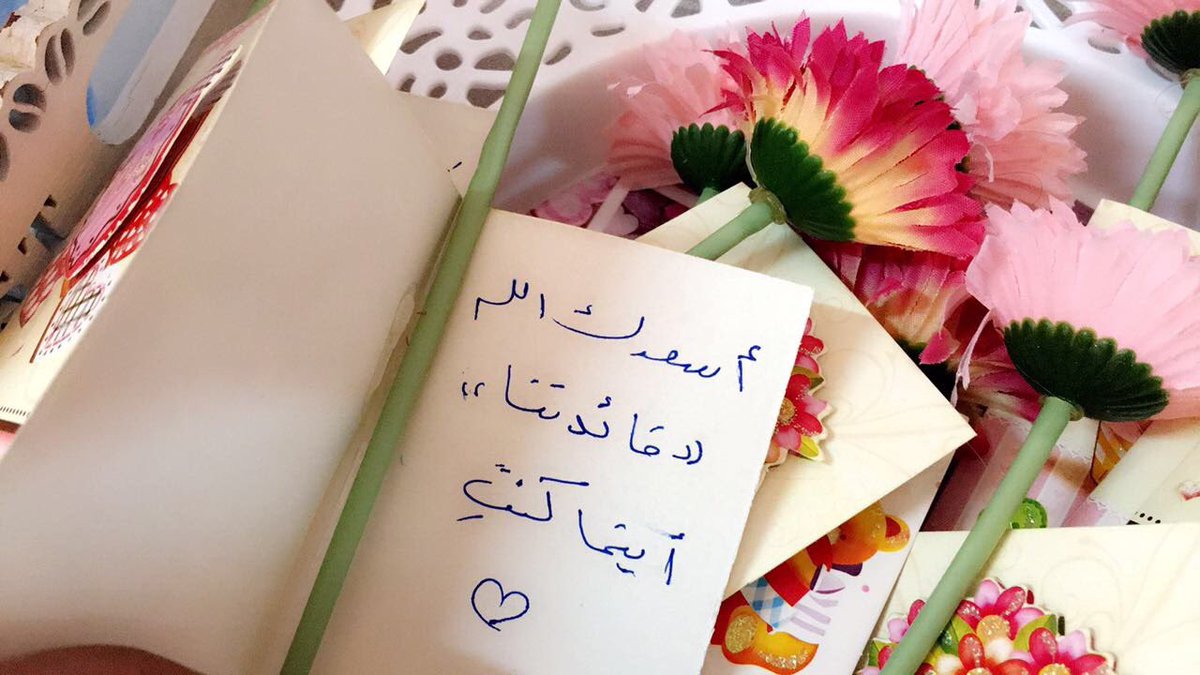 أسعدك الله
«قائدتنا»
أينما كنتِ
♡